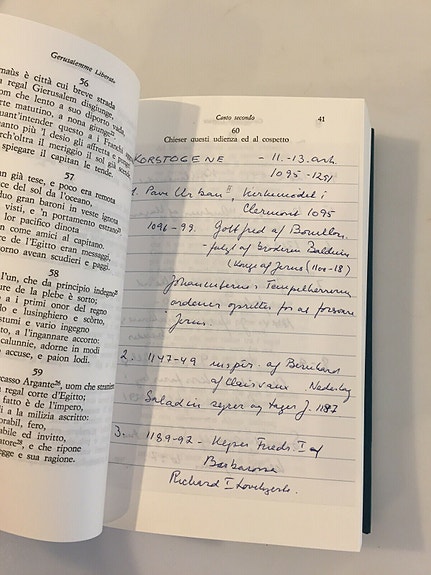 Gerusalemme Liberat
56
maùs è città cui breve strada
a regal Gierusalem disgiunge,
om che lento a suo diporto vada,
rte matutino, a nona giunge
quant'intender questo a i Franchi
anto più 'l desio gli affretta e p
rch'oltra il meriggio il sol già scende
spiegare il capitan le tende.
57
an già tese, e poco era remota
ce del sol da l'oceano,
duo gran baroni in veste ignota
visti, e 'n portamento estrano
lor pacifico dinota
on come amici al capitano.
re de l'Egitto eran messaggi,
torno avean scudieri e paggi.
58
l'un, che da principio indegno
ure de la plebe è sorto;
a i primi onor del regno
do e lusinghiero e scòrto,
stumi e vario ingegno
, a l'ingannare accorto:
calunnie, adorne in modi
e accuse, e paion lodi.
59
casso Argante, uom che stranie
regal corte d'Egitto;
fatto è de l'impero,
i a la milizia ascritto:
orabil, fero,
abile ed invitto,
atore, e che ripone
egge e sua ragione.
Canto secondo 41
60
Chieser questi udienza ed al cospetto
KORSTOGENE - 11.-13. årh.
1095-1291
1. Pave Urban II, Kirkemødet i
Clermont 1095
1096-99. Gotfred af Bouillon.
- fulgt af broderen Balduin
(Konge af Jerus (1100-18)
Johanniternes & Tempelherrernes
ordener oprettes for at forsvare
Jerus.
2. 1147-49 inspir. af Bernhard
af Clairvaux Nederlag
Saladin sejrer og tager J. 1187
3. 1189-92 - Kejser Fredr. I af
Barbarossa
Richard I Løvehjerte.